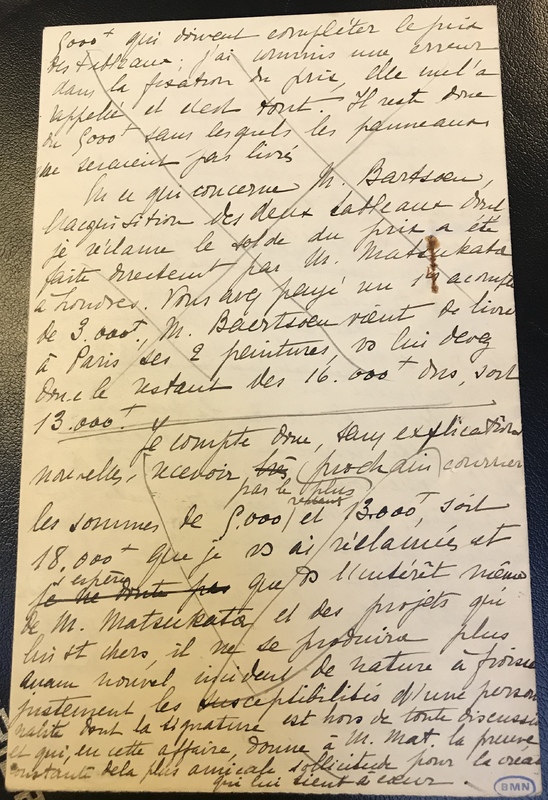 5000 + qui doivent compléter le prix
des tableaux; j'ai commis une erreur
dans la fixation du prix, elle me l'a
rappelé et c'est tout. Il reste donc
du 5000 + sans lesquels les panneaux
ne seraient pas livrés
En ce qui concerne M. Bartsoen,
l'acquisition des deux tableaux dont
je réclame le solde du prix a été
faite directement par M. Matsukata
à Londres. Vous avez payé un 1er acompte
de 3.000+, M. Baertsoen vient de livrer
à Paris ses 2 peintures, vs lui devez
donc le restant des 16.000 + dus, soit
13.000.+
Je compte donc, sans explications
nouvelles, recevoir prochain courrier
par le plus
les sommes de 5.000 et 13.000+, soit
18.000+ que je vs ai réclamées et
j'espère
je ne doute pas que ds l'intérêt même
de M. Matsukata et des projets qui
lui st chers, il ne se produira plus
aucun nouvel incident de nature à froisser
justement les susceptibilités d'une person
nalité dont la signature est hors de toute discussion
et qui, en cette affaire, donne à M. Mat la preuve
constante de la plus amicale sollicitude pour la
qui lui tient à cœur.
BMN